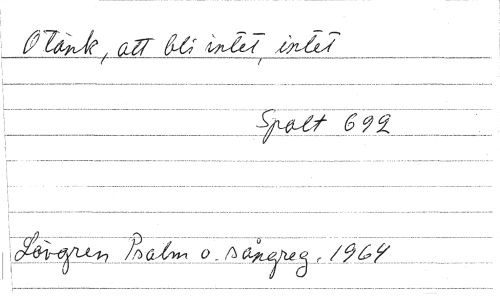 O tänk, att bli intet, intet
Spalt 692
Lövgren Psalm o. sångreg. 1964